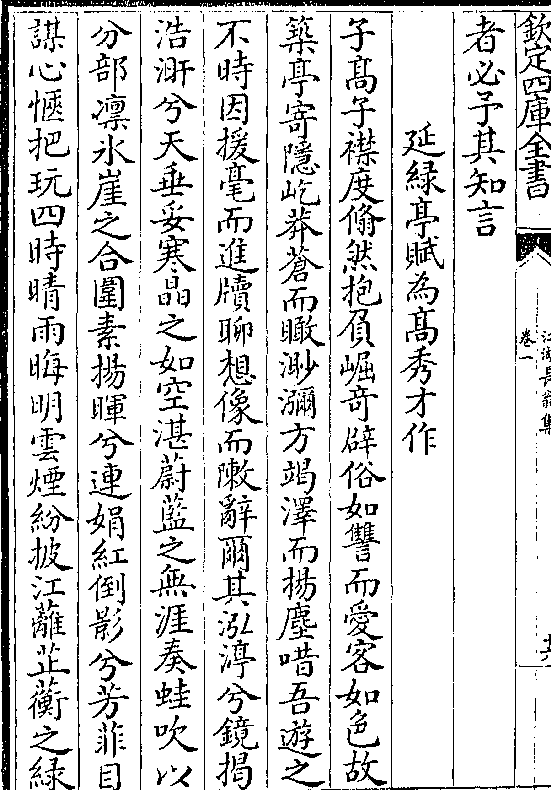 欽定四庫全書
江湖長翁集
卷一
者必予其知言
延緑亭賦為髙秀才作
子髙子襟度翛然抱負崛奇辟俗如讐而愛客如色故
築亭寄隱屹莽蒼而瞰渺瀰方竭澤而揚塵唶吾遊之
不時因援毫而進牘聊想像而敶辭爾其泓渟兮鏡揭
浩溔兮天垂妥寒晶之如空湛蔚藍之無涯奏蛙吹以
分部凛氷崖之合圍素揚暉兮連娟紅倒影兮芳菲目
謀心愜把玩四時晴雨晦明雲煙紛披江蘺芷蘅之緑